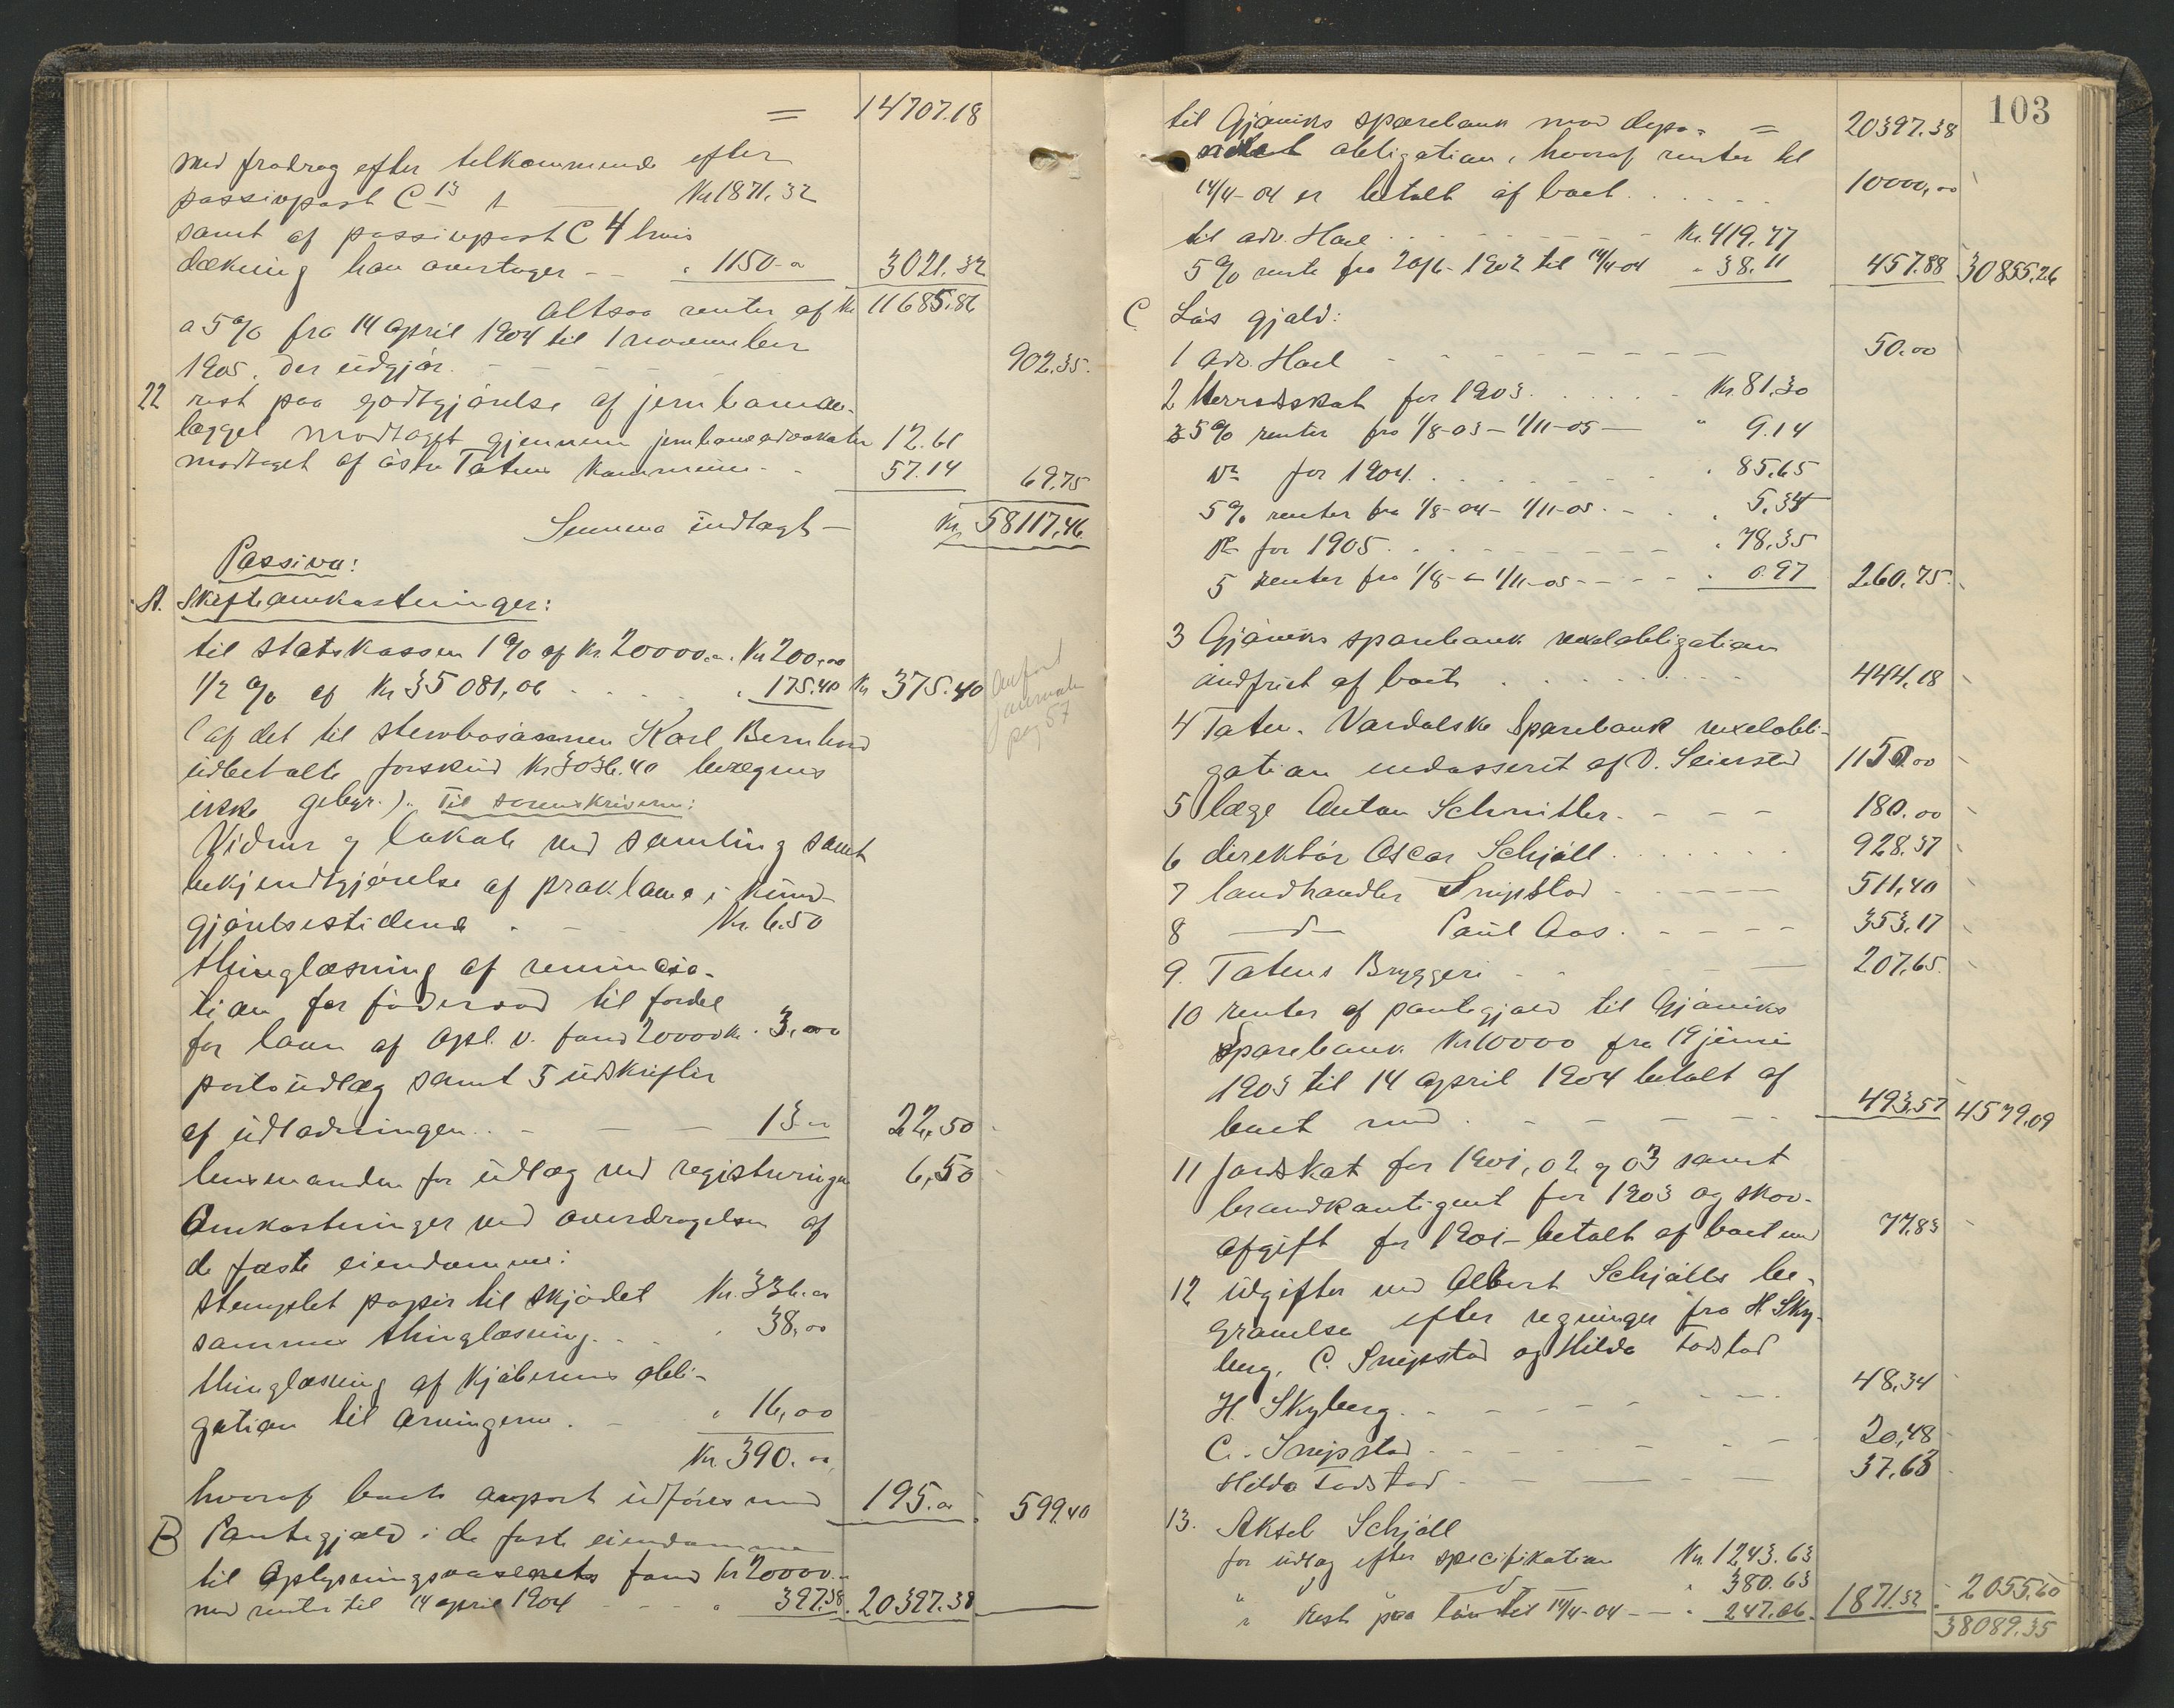 = 14707.18
med fradrag efter tilkommende efter
passivpost C 13 Kr 1871.32
samt af passivpost C 4 hvis
dækning han overtager - - " 1150.- 3021.32
altsaa renter af Kr 11685.86
a 5% fra 14 april 1904 til 1 november
1905. der udgjør. - - - 902.35.
22 rest paa godtgjørelse af jernbanean-
lægget modtaget gjennem jernbaneadvokaten 12.61
modtaget af østre Toten kommune. - 57.14 69.75
Summa indtægt - Kr. 58117.46.
Passiva:
A. Skifteomkostninger:
til statskassen 1% af Kr. 20000.- Kr 200.00
1/2 % af Kr 35081,06 . . . . " 175.40 Kr 375.40
(af det til stervbosønnen Karl Bernhard
udbetalte forskud Kr 3036.40 beregnes
ikke gebyr.). Til sorenskriveren:
Vidner og lokale ved samling samt
bekjendtgjørelse af proklama i Kund-
gjørelsestidende . - - Kr. 6.50
thinglæsning af renuncia-
tion for føderaad til fordel
for laan af opl. v. fond 20000 kr. 3.00
porto udlæg samt 5 udskrifter
af udlodningen. - - - 13.- 22,50
lensmanden for udlæg ved registreringen 6,50
Omkostninger ved overdragelsen af
de faste eiendomme:
stemplet papir til skjødet Kr. 336.00
sammes thinglæsning. - . " 38,00
thinglæsning af kjøberens obli-
gation til arvingerne. - " 16,00
Kr 390.00
hvoraf boets anpart udføres med 195.00 599.40
B Pantegjæld i de faste eiendomme
til Oplysningsvæsenets fond Kr 20000.-
med renter til 14 april 1904 - - - " 397.38 20397.38
Anført
journalen
pag 57
103
til Gjøviks sparebank mod depo- = 20397.38
neret obligation, hvoraf renter til
14/4-04 er betalt af boet . . . . . 10000,00
til adv. Hoel . . . . . . Kr. 419.77
5% rente fra 20/6-1902 til 14/4-04 " 38.11 457.88 30855.26
C Løs gjæld:
1 adv. Hoel - - - - - - 50.00
2 Herredsskat for 1903. . . . . Kr. 81.30
5% renter fra 1/8-03 - 1/11-05 - " 9.14
Do for 1904. . . . . . . " 85.65
5% renter fra 1/8-04 - 1/11-05. - . " 5.34
Do for 1905. . . . . . . " 78.35
5 renter fra 1/8 - 1/11-05 - - - - " 0.97 260.75.
3 Gjøviks sparebank vexelobligation
indfriet af boet . . . . . . 444.18
4 Toten. Vardalske Sparebank vexelobli-
gation endosseret af O. Seiersted 1150.00
5 læge Anton Schmitler. - - - 180.00
6 direktør Oscar Schjøll . . . . . . 928.37
7 landhandler Snipstad - - - - - 511,40
8 - d - Paul Aas. - - - - 353.17
9. Totens Bryggeri - - - - 207.65.
10 renter af pantegjæld til Gjøviks
Sparebank Kr 10000 fra 19 juni
1903 til 14 april 1904 betalt af
boet med . - - - - 493.57 4579.09
11 Jordskat for 1901, 02 og 03 samt
brandkontigent for 1903 og skov-
afgift for 1901 - betalt af boet med 77.83
12 udgifter ved Albert Schjølls be-
gravelse efter regninger fra H. Sky-
berg, C. Snipstad og Hilda Fodstad
H. Skyberg. - - - - - 48.34
C. Snipstad - - - - - - 20,48
Hilda Fodstad - - - - - 37.63
13. Aksel Schjøll
for udlæg efter specifikation Kr. 1243.63
" d d " 380.63
" Rest paa løn til 14/4-04 - - " 247.06 1871.32 2055.60
38089.35